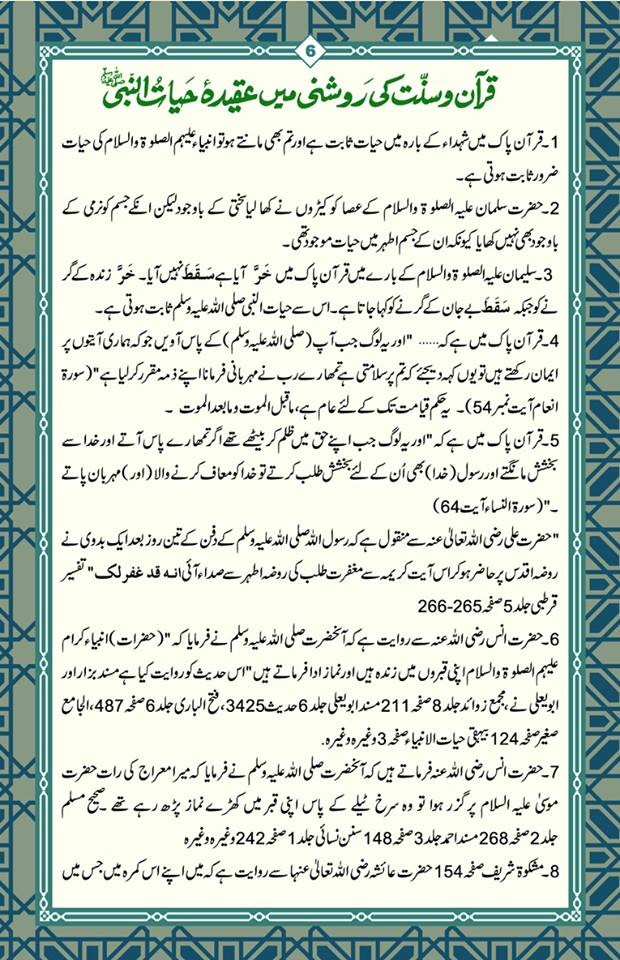 6
قرآن وسنّت کی رَوشنی میں عقیدۂ حَیاتُ النّبی ﷺ
1۔قرآن پاک میں شہداء کے بارہ میں حیات ثابت ہے اور تم بھی مانتے ہو تو انبیاء علیہم الصلوۃ والسلام کی حیات
ضرور ثابت ہوتی ہے۔
2۔حضرت سلمان علیہ الصلوۃ والسلام کے عصا کو کیڑوں نے کھا لیا سختی کے باوجود لیکن انکے جسم کو نرمی کے
باوجود بھی نہیں کھایا کیونکہ ان کے جسم اطہر میں حیات موجود تھی۔
3۔سلیمان علیہ الصلوۃ والسلام کے بارے میں قرآن پاک میں خَرَّ آیا ہے سَقَطَ نہیں آیا۔ خَرَّ زندہ کے گر
نے کو جبکہ سَقَطَ بے جان کے گرنے کو کہا جاتا ہے۔اس سے حیات النبی صلی اللہ علیہ وسلم ثابت ہوتی ہے۔
4۔قرآن پاک میں ہے کہ...... "اور یہ لوگ جب آپ (صلی اللہ علیہ وسلم) کے پاس آویں جو کہ ہماری آیتوں پر
ایمان رکھتے ہیں تو یوں کہہ دیجیئے کہ تم پر سلامتی ہے تمھارے رب نے مہربانی فرمانا اپنے ذمہ مقرر کر لیا ہے"(سورۃ
انعام آیت نمبر 54)۔ یہ حکم قیامت تک کے لئے عام ہے، ماقبل الموت و مابعد الموت ۔
5۔قرآن پاک میں ہے کہ "اور یہ لوگ جب اپنے حق میں ظلم کر بیٹھے تھے اگر تمھارے پاس آتے اور خدا سے
بخشش مانگتے اور رسول (خدا) بھی اُن کے لئے بخشش طلب کرتے تو خدا کو معاف کرنے والا (اور) مہربان پاتے
۔"(سورۃ النساء آیت 64)
"حضرت علی رضی اللہ تعالیٰ عنہ سے منقول ہے کہ رسول اللہ صلی اللہ علیہ وسلم کے دفن کے تین روز بعد ایک بدوی نے
روضہ اقدس پر حاضر ہو کر اس آیت کریمہ سے مغفرت طلب کی روضہ اطہر سے صداء آئی انه قد غفر لك" تفسیر
قرطبی جلد 5 صفحہ 265-266
6۔حضرت انس رضی اللہ عنہ سے روایت ہے کہ آنحضرت صلی اللہ علیہ وسلم نے فرمایا کہ "(حضرات) انبیاء کرام
علیہم الصلوۃ والسلام اپنی قبروں میں زندہ ہیں اور نماز ادا فرماتے ہیں"اس حدیث کو روایت کیا ہے مسند بزار اور
ابویعلی نے، مجمع زوائد جلد 8 صفحہ 211 مسند ابویعلی جلد 6 حدیث 3425، فتح الباری جلد 6 صفحہ 487، الجامع
صغیر صفحہ 124 بیہقی حیات الانبیاء صفحہ 3 وغیرہ وغیرہ.
7۔حضرت انس رضی اللہ عنہ فرماتے ہیں کہ آنحضرت صلی اللہ علیہ وسلم نے فرمایا کہ میرا معراج کی رات حضرت
موسیٰ علیہ السلام پر گزر ہوا تو وہ سرخ ٹیلے کے پاس اپنی قبر میں کھڑے نماز پڑھ رہے تھے ۔صحیح مسلم
جلد 2 صفحہ 268 مسند احمد جلد 3 صفحہ 148 سنن نسائی جلد 1 صفحہ 242 وغیرہ وغیرہ
8۔مشکوۃ شریف صفحہ 154 حضرت عائشہ رضی اللہ تعالیٰ عنہا سے روایت ہے کہ میں اپنے اس کمرہ میں جس میں